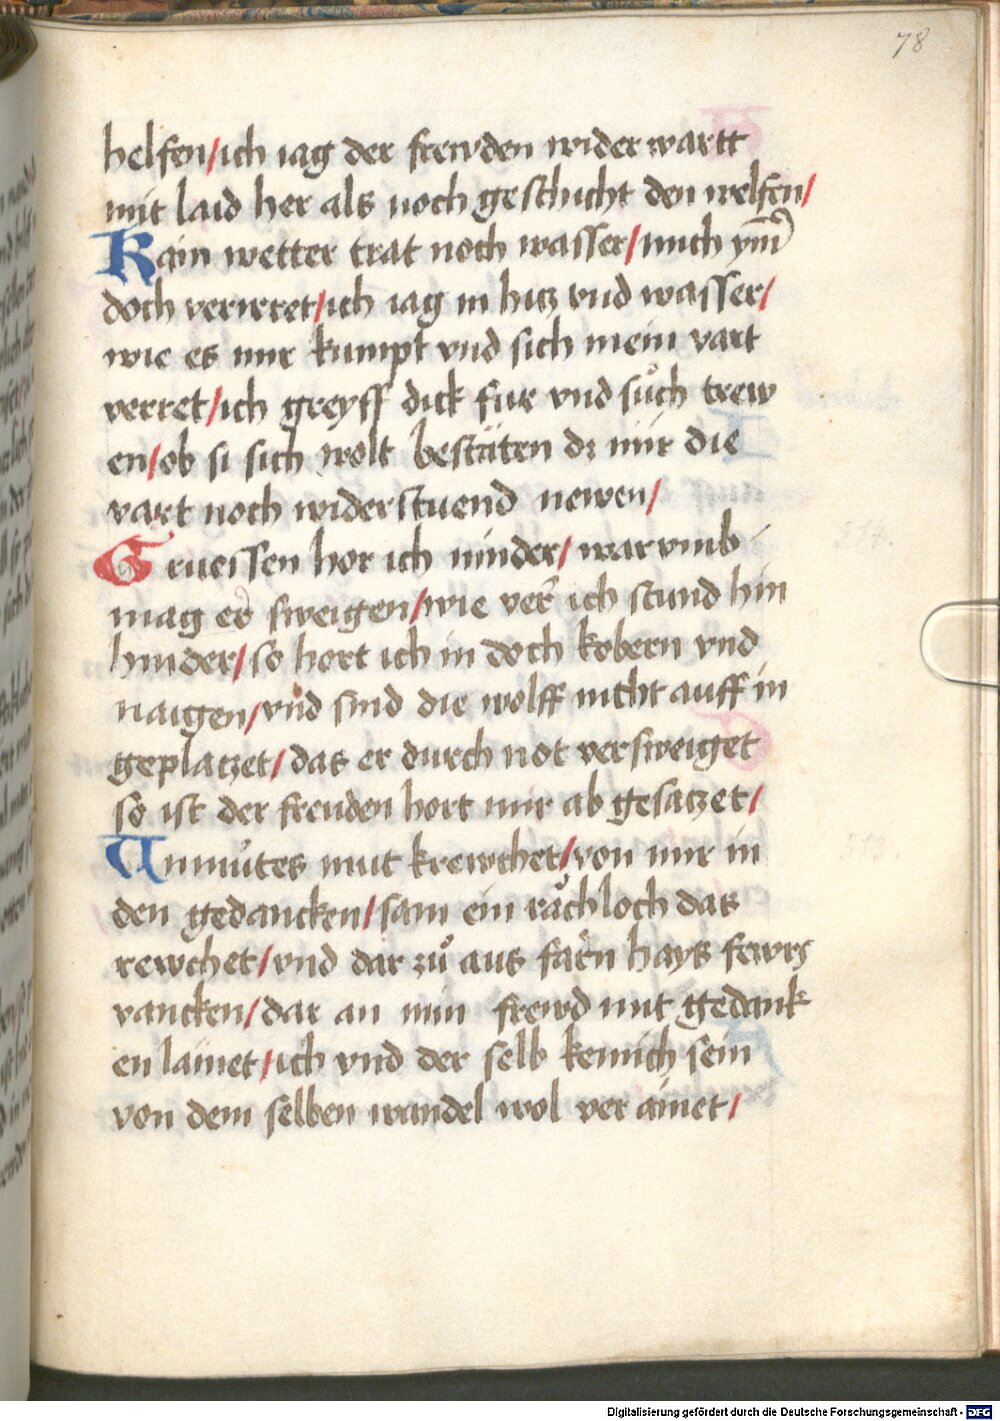 78
helfen/ich iag der frewden wider wartt
mit laid her als noch geschicht den welfen/
Kain wetter trat noch wasser/mich ym̄
doch verirret/ich iag in hitz vnd wasser/
wie es mir kumpt vnd sich mein vart
verret/ich greyff dick fur vnd sůch trew
en/ob si sich wolt bestäten dz mir die
vart noch widerstuend newen/
Grueissen hor ich ninder/warvmb
mag er sweigen/wie ver ich stund hin
hinder/so hort ich in doch kobern vnd
naigen/vnd sind die wolff nicht auff in
geplatzet/das er durch not versweiget
so ist der freuden hort mir ab gesatzet/
Unmůtes mut krewchet/von mir in
den gedancken/sam ein råchloch das
rewchet/vnd dar zů aus farn hays fewrs
vancken/dar an min frewd mit gedank
en lainet/ich vnd der selb kemich sein
von dem selben wandel wol ver ainet/
Digitalisierung gefördert durch die Deutsche Forschungsgemeinschaft - DFG